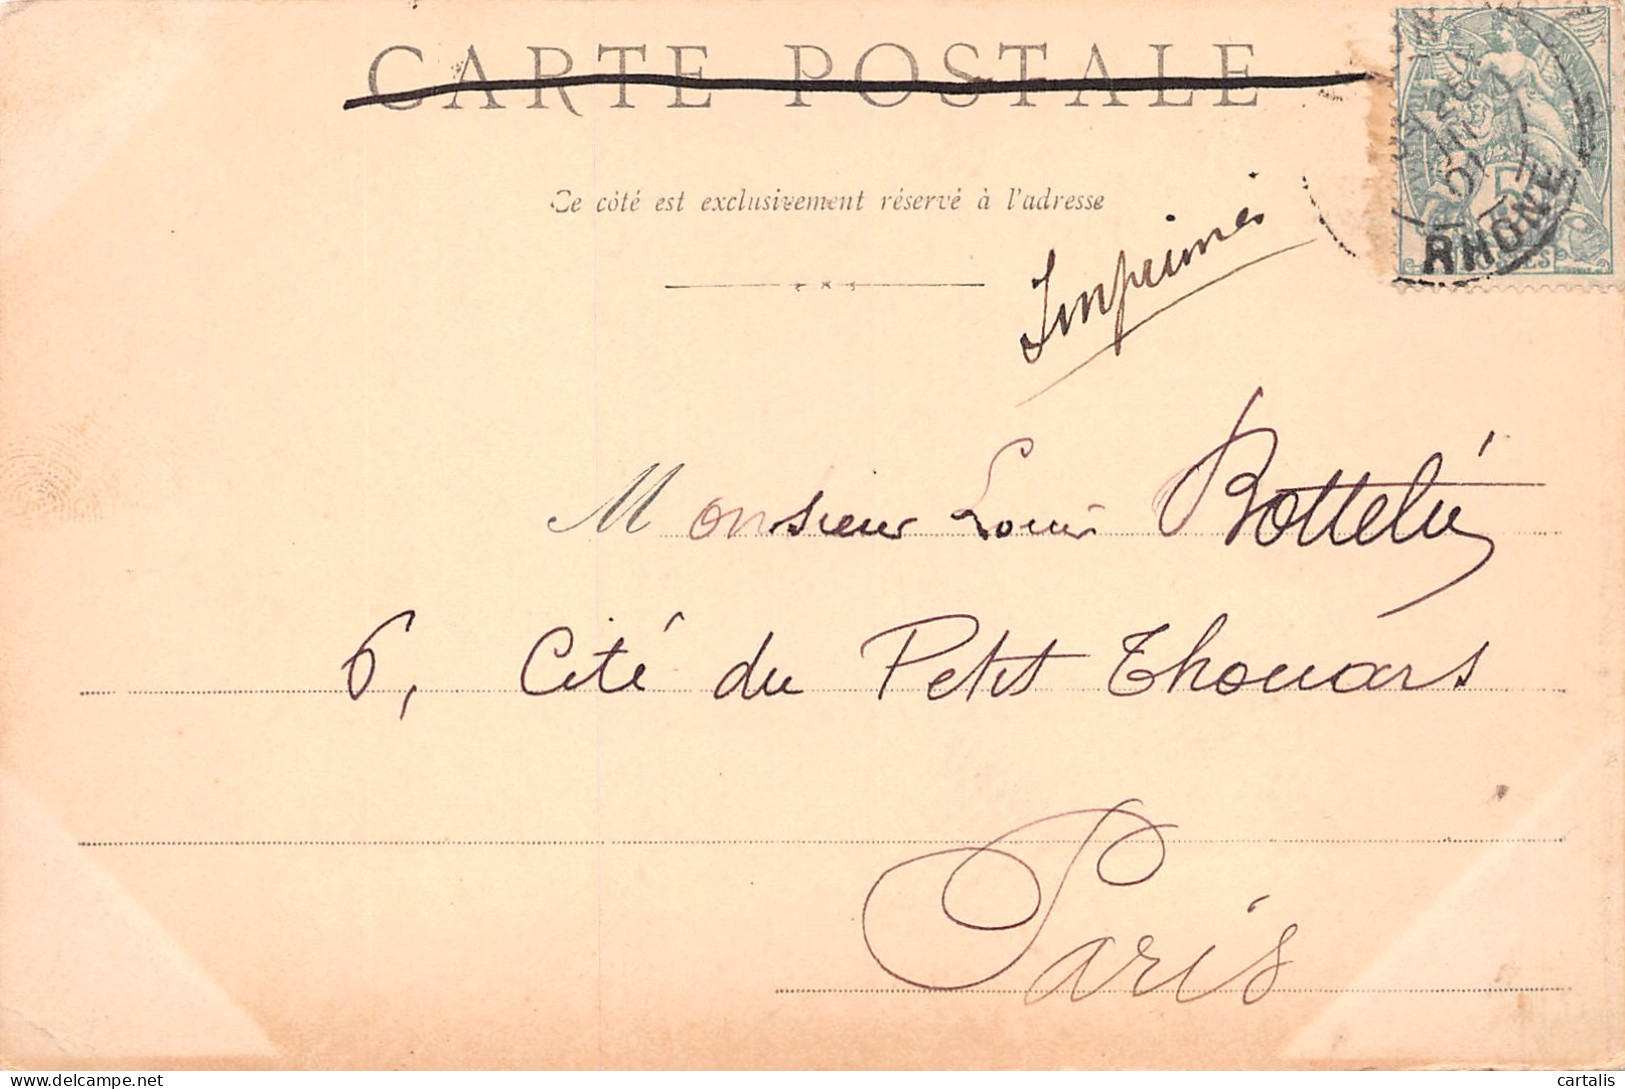 CARTE POSTALE
Ce côté est exclusivement réservé à l'adresse
Imprimés
RHONE
5
Monsieur Louis Bottelié
6, Cité du Petit Thouars
Paris
www.delcampe.net
cartalis